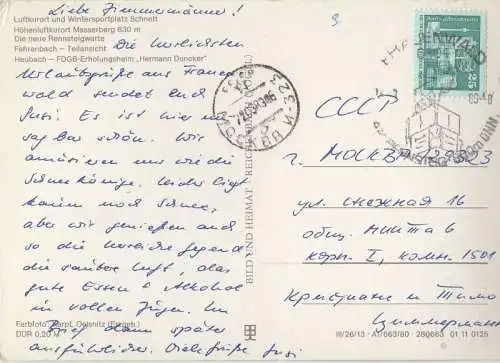 Liebe Zimmermänner!
Luftkurort und Wintersportplatz Schnett
Höhenluftkurort Masserberg 830 m
Die neue Rennsteigwarte
Fehrenbach – Teilansicht
Heubach – FDGB-Erholungsheim „Hermann Duncker"
Die herzlichsten
Urlaubsgrüße aus
wald sendet Euch
Susi. Es ist hier
sagbar schön. Wir
amüsieren uns wie die
Schneekönige. Leider liegt
kaum noch Schnee,
aber wir genießen auch
so die herrliche Gegend
die saubere Luft, das
gute Essen + Alkohol
in vollen Zügen. Im
Brief dann später
ausführlicher. Viele Grüße Susi
Farbfoto: Oelsnitz (Erzgeb.)
DDR 0,20 M
BILD UND HEIMAT REICHENBACH
МОСКВА И-323
25
СССР
г. МОСКВА
ул. снежная 16
общ. МИСТиВ
корп. I, комн. 1501
Кристиане и Тимо
Циммерманн
III/26/13 A1/663/80 280663 01 11 0125